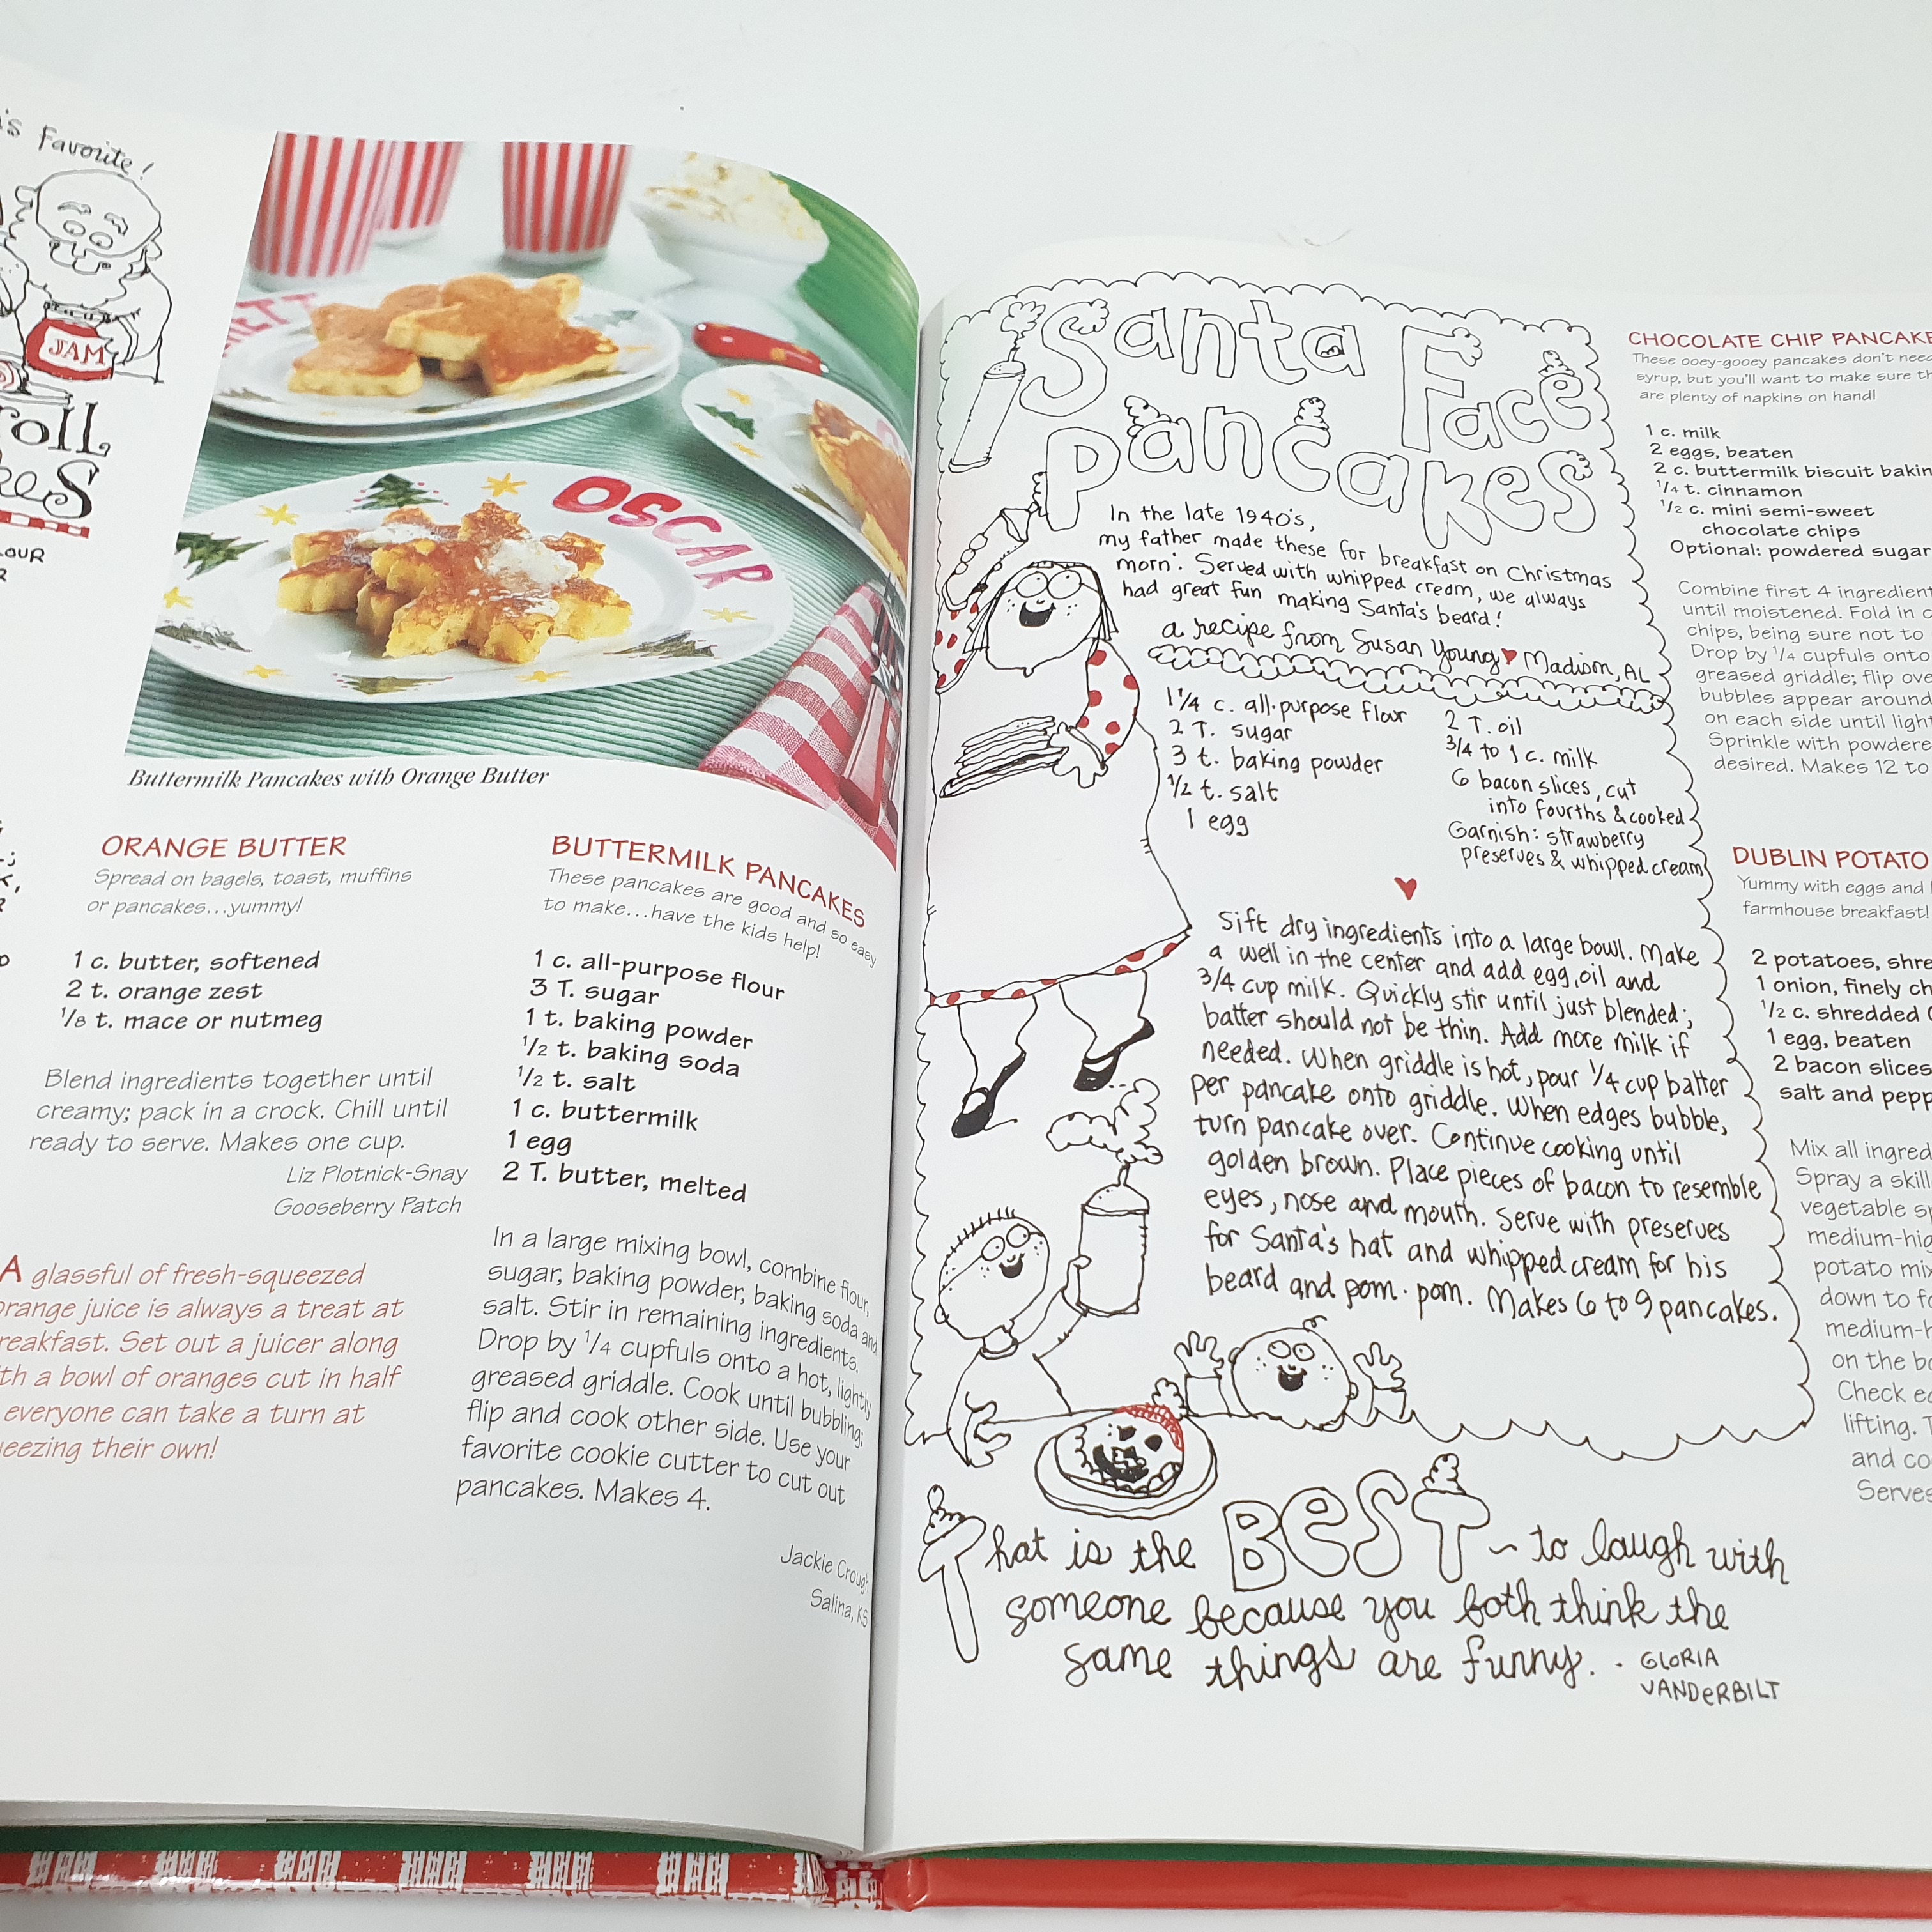 's Favorite!
JAM
roll
kes
LOUR
OSCAR
Buttermilk Pancakes with Orange Butter
ORANGE BUTTER
Spread on bagels, toast, muffins
or pancakes...yummy!
1 c. butter, softened
2 t. orange zest
1/8 t. mace or nutmeg
Blend ingredients together until
creamy; pack in a crock. Chill until
ready to serve. Makes one cup.
Liz Plotnick-Snay
Gooseberry Patch
A glassful of fresh-squeezed
orange juice is always a treat at
reakfast. Set out a juicer along
th a bowl of oranges cut in half
everyone can take a turn at
ueezing their own!
BUTTERMILK PANCAKES
These pancakes are good and so easy
to make...have the kids help!
1 c. all-purpose flour
3 T. sugar
1 t. baking powder
1/2 t. baking soda
1/2 t. salt
1 c. buttermilk
1 egg
2 T. butter, melted
In a large mixing bowl, combine flour,
sugar, baking powder, baking soda and
salt. Stir in remaining ingredients.
Drop by 1/4 cupfuls onto a hot, lightly
greased griddle. Cook until bubbling;
flip and cook other side. Use your
favorite cookie cutter to cut out
pancakes. Makes 4.
Jackie Crough
Salina, KS
Santa Face
Pancakes
In the late 1940's,
my father made these for breakfast on Christmas
morn'. Served with whipped cream, we always
had great fun making Santa's beard!
a recipe from Susan Young ♥ Madison, AL
1 1/4 c. all-purpose flour
2 T. sugar
3 t. baking powder
1/2 t. salt
1 egg
2 T. oil
3/4 to 1 c. milk
6 bacon slices, cut
into fourths & cooked
Garnish: strawberry
preserves & whipped cream
♥
Sift dry ingredients into a large bowl. Make
a well in the center and add egg, oil and
3/4 cup milk. Quickly stir until just blended;
batter should not be thin. Add more milk if
needed. When griddle is hot, pour 1/4 cup batter
per pancake onto griddle. When edges bubble,
turn pancake over. Continue cooking until
golden brown. Place pieces of bacon to resemble
eyes, nose and mouth. Serve with preserves
for Santa's hat and whipped cream for his
beard and pom-pom. Makes 6 to 9 pancakes.
That is the BEST ~ to laugh with
someone because you both think the
same things are funny. - GLORIA
VANDERBILT
CHOCOLATE CHIP PANCAKE
These ooey-gooey pancakes don't need
syrup, but you'll want to make sure th
are plenty of napkins on hand!
1 c. milk
2 eggs, beaten
2 c. buttermilk biscuit bakin
1/4 t. cinnamon
1/2 c. mini semi-sweet
chocolate chips
Optional: powdered sugar
Combine first 4 ingredient
until moistened. Fold in c
chips, being sure not to
Drop by 1/4 cupfuls onto
greased griddle; flip ove
bubbles appear around
on each side until light
Sprinkle with powdere
desired. Makes 12 to
DUBLIN POTATO
Yummy with eggs and
farmhouse breakfast!
2 potatoes, shre
1 onion, finely ch
1/2 c. shredded
1 egg, beaten
2 bacon slices
salt and pepp
Mix all ingred
Spray a skill
vegetable sp
medium-hig
potato mix
down to fo
medium-h
on the bo
Check ed
lifting. T
and co
Serves